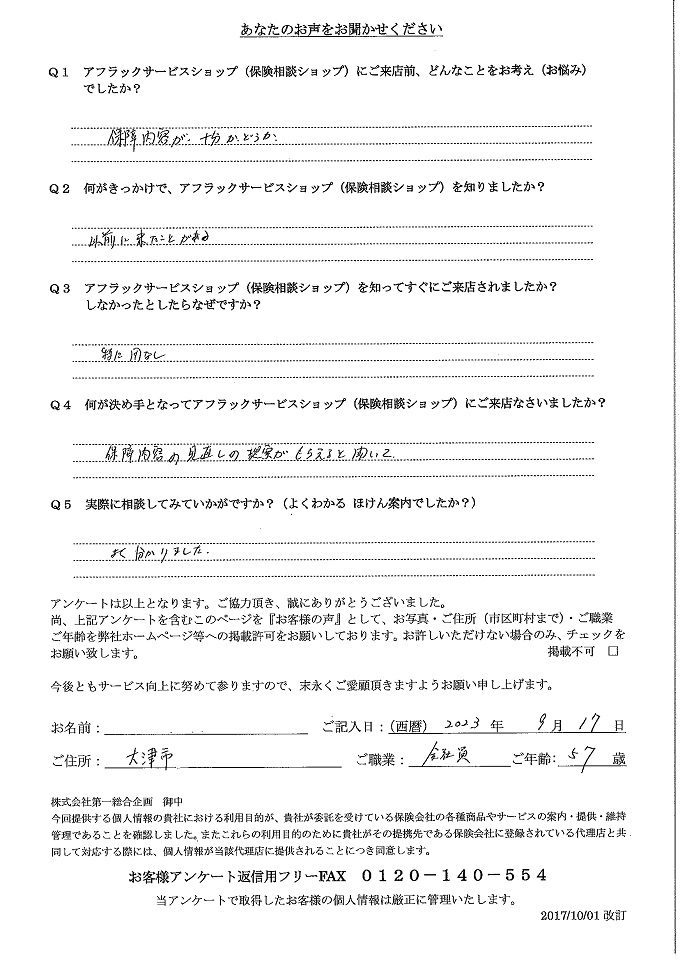 あなたのお声をお聞かせください
Q1 アフラックサービスショップ（保険相談ショップ）にご来店前、どんなことをお考え（お悩み）
でしたか？
保障内容が十分かどうか、
Q2 何がきっかけで、アフラックサービスショップ（保険相談ショップ）を知りましたか？
以前に来たことがある
Q3 アフラックサービスショップ（保険相談ショップ）を知ってすぐにご来店されましたか？
しなかったとしたらなぜですか？
特になし
Q4 何が決め手となってアフラックサービスショップ（保険相談ショップ）にご来店なさいましたか？
保障内容の見直しの提案がもらえると聞いて
Q5 実際に相談してみていかがですか？（よくわかる ほけん案内でしたか？）
よく分かりました．
アンケートは以上となります。ご協力頂き、誠にありがとうございました。
尚、上記アンケートを含むこのページを『お客様の声』として、お写真・ご住所（市区町村まで）・ご職業
ご年齢を弊社ホームページ等への掲載許可をお願いしております。お許しいただけない場合のみ、チェックを
お願い致します。 掲載不可 □
今後ともサービス向上に努めて参りますので、末永くご愛顧頂きますようお願い申し上げます。
お名前： ご記入日：（西暦） 2023 年 9月 17日
ご住所： 大津市 ご職業： 会社員 ご年齢： 57 歳
株式会社第一総合企画 御中
今回提供する個人情報の貴社における利用目的が、貴社が委託を受けている保険会社の各種商品やサービスの案内・提供・維持
管理であることを確認しました。またこれらの利用目的のために貴社がその提携先である保険会社に登録されている代理店と共
同して対応する際には、個人情報が当該代理店に提供されることにつき同意します。
お客様アンケート返信用フリーFAX 0120－140－554
当アンケートで取得したお客様の個人情報は厳正に管理いたします。
2017/10/01 改訂